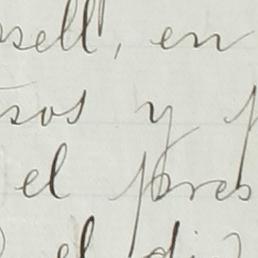 sell", en
sos y p
el pres
el di